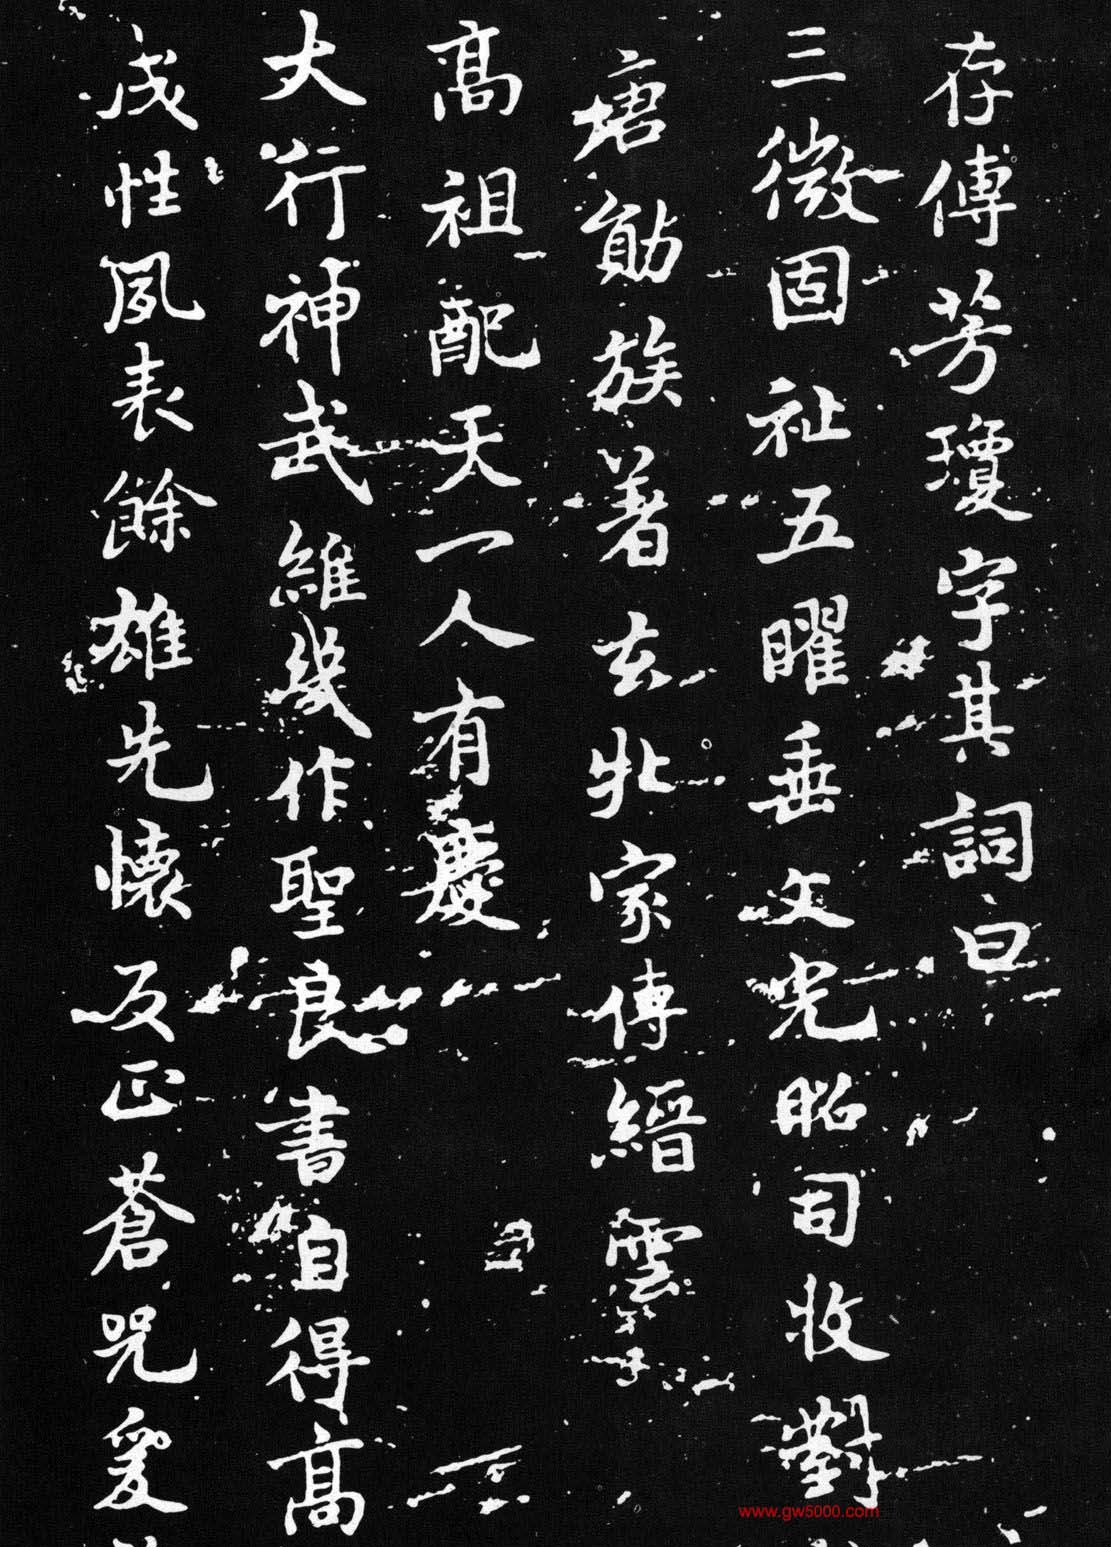 存傳芳瓊字其詞曰
三微固祉五曜垂文光昭司牧對
唐勛族著玄牝家傳縉雲
高祖配天一人有慶
大行神武維幾作聖良書自得高
成性夙表餘雄先懷反正蒼兕爰
www.gw5000.com